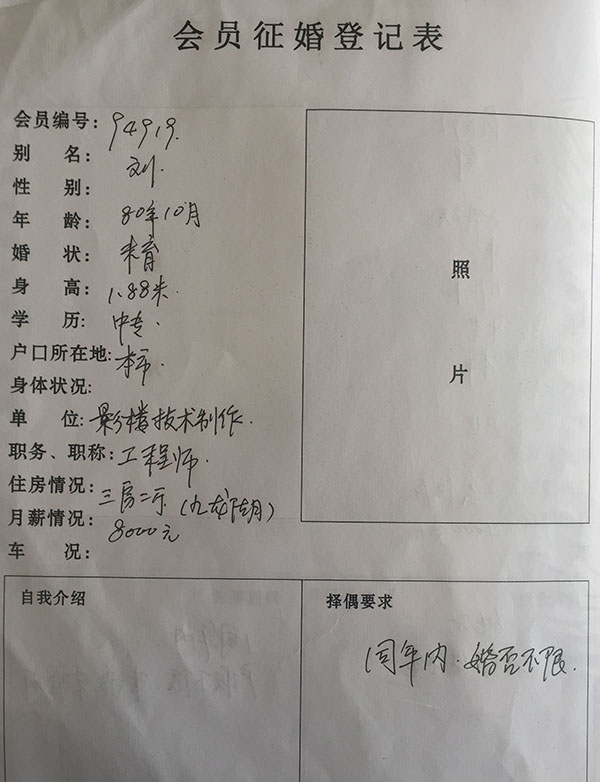 会员征婚登记表
会员编号: 94919.
别名: 刘.
性别:
年龄: 80年10月
婚状: 未育
身高: 1.88米.
学历: 中专.
户口所在地: 本市.
身体状况:
单位: 影楼技术制作.
职务、职称: 工程师.
住房情况: 三房二厅(九龙明)
月薪情况: 8000元
车况:
照
片
自我介绍
择偶要求
同年内. 婚否不限.